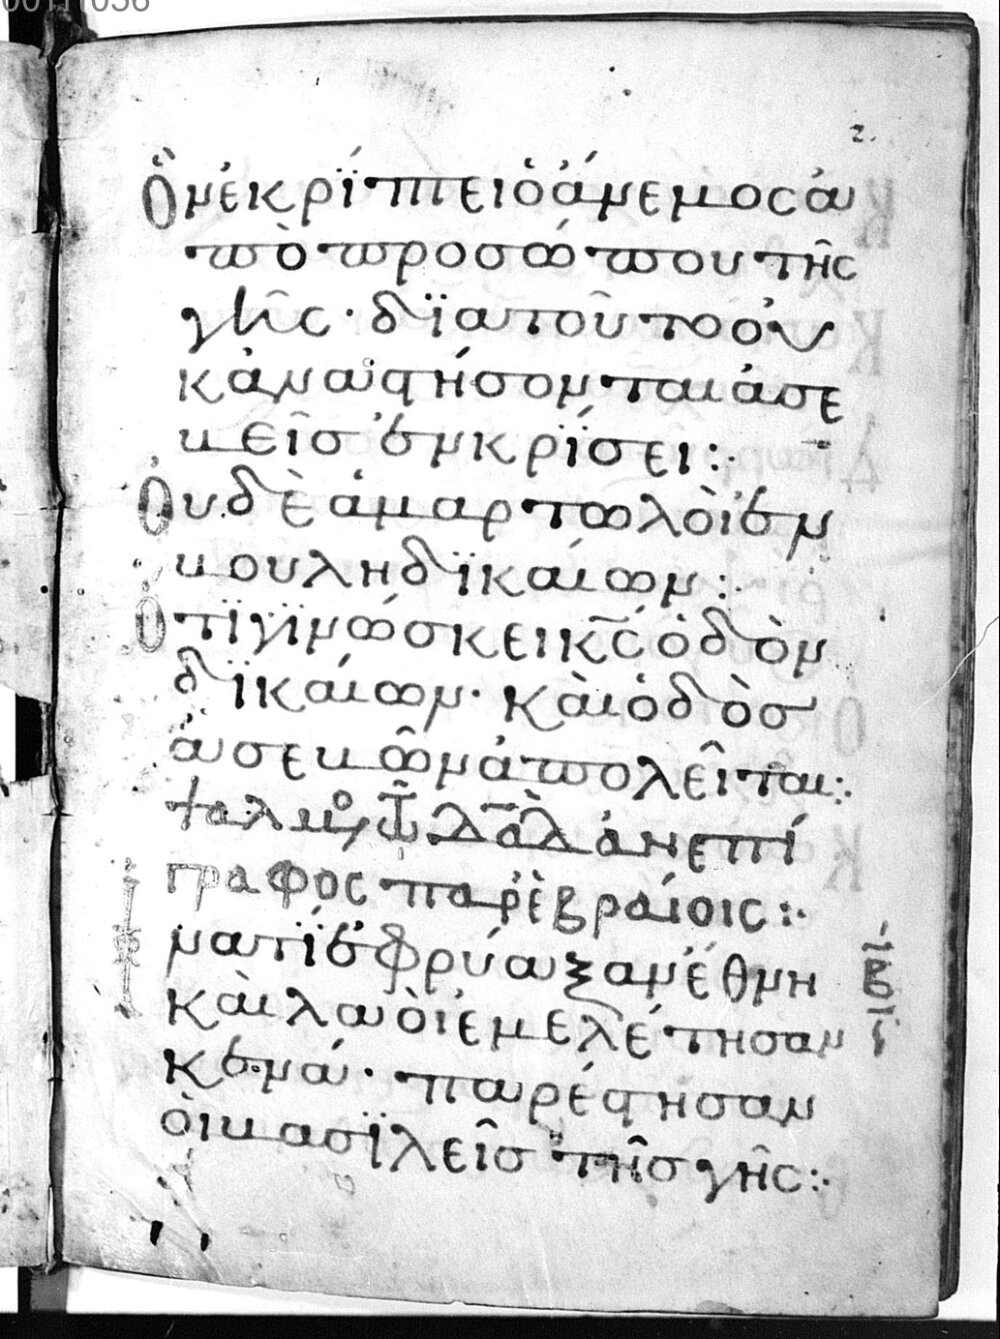 00111056
2.
Ὃν ἐκρίπτει ὁ ἄνεμος ἀ
πὸ προσώπου τῆς
γῆς· διατοῦτο οὐ
κ ἀναστήσονται ἀσε
βεῖσ ἐν κρίσει:·
Οὐδὲ ἁμαρτωλὸι ἐν
βουλῆ δικαίων:·
Ὅτι γινώσκει κ̅ς̅ ὁδὸν
δικαίων· κὰι ὁδὸσ
ἀσεβῶν ἀπολεῖται:·
ψαλμὸς τῶ δα̅δ̅ ἀνεπί
γραφος παρ ἑβραίοις:·
Ἱνατί ἐφρύαξαν ἔθνη
β̅
κὰι λαὸι ἐμελέτησαν
κενά· παρέστησαν
ὁι βασιλεῖσ τῆσ γῆς:·